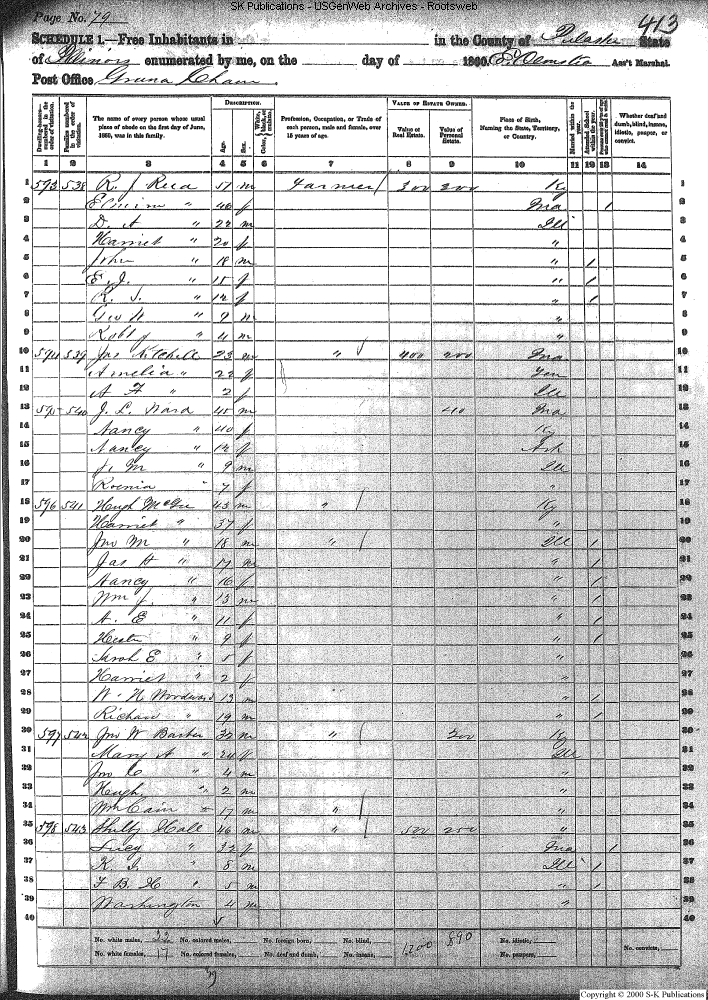 SK Publications - USGenWeb Archives - Rootsweb
Page No. 79
413
SCHEDULE 1.—Free Inhabitants in in the County of Pulaski State
of Illinois enumerated by me, on the day of 1860. E. Olmsted Ass't Marshal.
Post Office Grand Chain
Dwelling-houses—numbered in the order of visitation.
Families numbered in the order of visitation.
The name of every person whose usual place of abode on the first day of June, 1860, was in this family.
DESCRIPTION.
Age.
Sex.
Color, White, black, or mulatto.
Profession, Occupation, or Trade of each person, male and female, over 15 years of age.
VALUE OF ESTATE OWNED.
Value of Real Estate.
Value of Personal Estate.
Place of Birth, Naming the State, Territory, or Country.
Married within the year.
Attended School within the year.
Whether deaf and dumb, blind, insane, idiotic, pauper, or convict.
1 2 3 4 5 6 7 8 9 10 11 12 13 14
1 593 538 R. J. 51 m Farmer / 300 200 Ky 1
2 " 40 f Ina 1 2
3 D. A " 22 m Ill 3
4 Harriet " 20 f " 4
5 John " 18 m " 1 5
6 E. J. " 15 f " 1 6
7 R. S. " 12 f " 1 7
8 Geo W " 9 m " 8
9 Robt J " 4 m " 9
10 594 539 Jas Kitchell 23 m " / 400 200 Ina 10
11 Amelia " 22 f Ten 11
12 A F " 2 f Ill 12
13 595 540 J. L. Ward 45 m 40 Ina 13
14 Nancy " 40 f Ky 14
15 Nancy " 12 f Ark 15
16 J. M " 9 m Ill 16
17 " 7 f " 17
18 596 541 Hugh McGee 43 m " / Ky 18
19 Harriet " 37 f " 19
20 Jno M " 18 m " / Ill 1 20
21 Jas H " 17 m " 1 21
22 Nancy " 16 f " 1 22
23 Wm J. " 13 m " 1 23
24 A. E " 11 f " 1 24
25 Hester " 9 f " 1 25
26 Sarah E " 5 f " 26
27 Harriet " 2 f " 27
28 W. H Woodward 13 m " 1 28
29 Richard " 19 m " 1 29
30 597 542 Jno W Barber 32 m " / 200 Ky 30
31 Mary A " 24 f Ill 31
32 Jno C " 4 m " 32
33 Hugh " 2 m " 33
34 Wm Cain 17 m " / " 34
35 598 543 Shelby Hale 46 m " / 500 250 " 35
36 Lucy " 32 f Ina 1 36
37 K. J. " 8 m Ill 1 37
38 F B H " 5 m " 1 38
39 Washington 4 m " 39
40 40
No. white males, 22 No. colored males, No. foreign born, No. blind, 1200 890 No. idiotic,
No. white females, 17 No. colored females, No. deaf and dumb, No. insane, No. paupers, No. convicts,
39
Copyright © 2000 S-K Publications